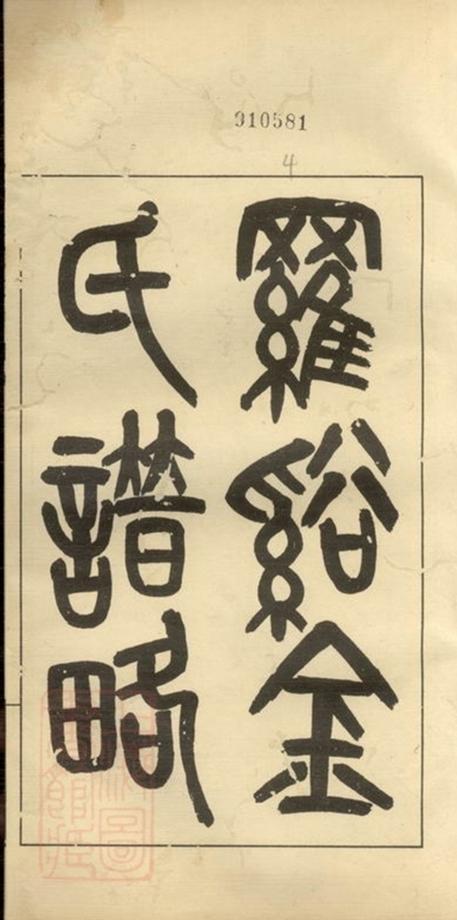 310581
4
羅谿金
氏譜略